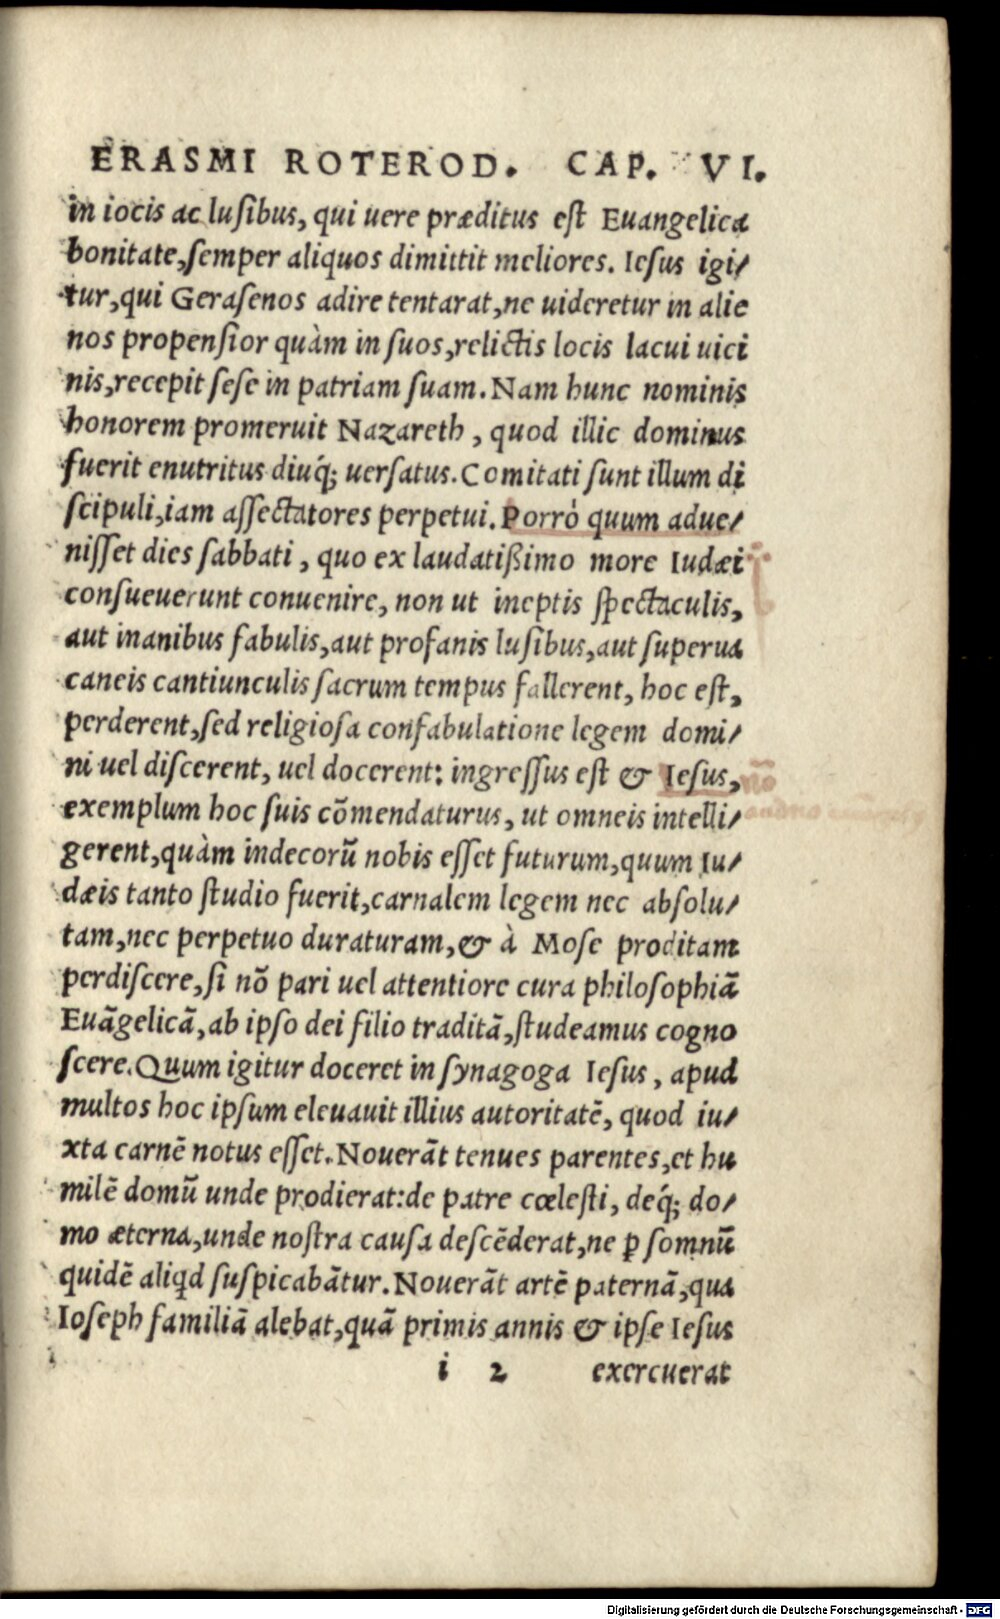 ERASMI ROTEROD. CAP. VI.
in iocis ac lusibus, qui uere præditus est Euangelica
bonitate, semper aliquos dimittit meliores. Iesus igi/
tur, qui Gerasenos adire tentarat, ne uideretur in alie
nos propensior quàm in suos, relictis locis lacui uici
nis, recepit sese in patriam suam. Nam hunc nominis
honorem promeruit Nazareth, quod illic dominus
fuerit enutritus diuq́; uersatus. Comitati sunt illum di
scipuli, iam assectatores perpetui. Porrò quum adue/
nisset dies sabbati, quo ex laudatißimo more Iudæi
consueuerunt conuenire, non ut ineptis spectaculis,
aut inanibus fabulis, aut profanis lusibus, aut superua
caneis cantiunculis sacrum tempus fallerent, hoc est,
perderent, sed religiosa confabulatione legem domi/
ni uel discerent, uel docerent: ingressus est & Iesus,
exemplum hoc suis cōmendaturus, ut omneis intelli/
gerent, quàm indecorū nobis esset futurum, quum Iu/
dæis tanto studio fuerit, carnalem legem nec absolu/
tam, nec perpetuo duraturam, & à Mose proditam
perdiscere, si nō pari uel attentiore cura philosophiā
Euāgelicā, ab ipso dei filio traditā, studeamus cogno
scere. Quum igitur doceret in synagoga Iesus, apud
multos hoc ipsum eleuauit illius autoritatē, quod iu/
xta carnē notus esset. Nouerāt tenues parentes, et hu
milē domū unde prodierat: de patre cœlesti, deq́; do/
mo æterna, unde nostra causa descēderat, ne ꝑ somnū
quidē aliqd suspicabātur. Nouerāt artē paternā, qua
Ioseph familiā alebat, quā primis annis & ipse Iesus
i 2 exercuerat
Digitalisierung gefördert durch die Deutsche Forschungsgemeinschaft - DFG